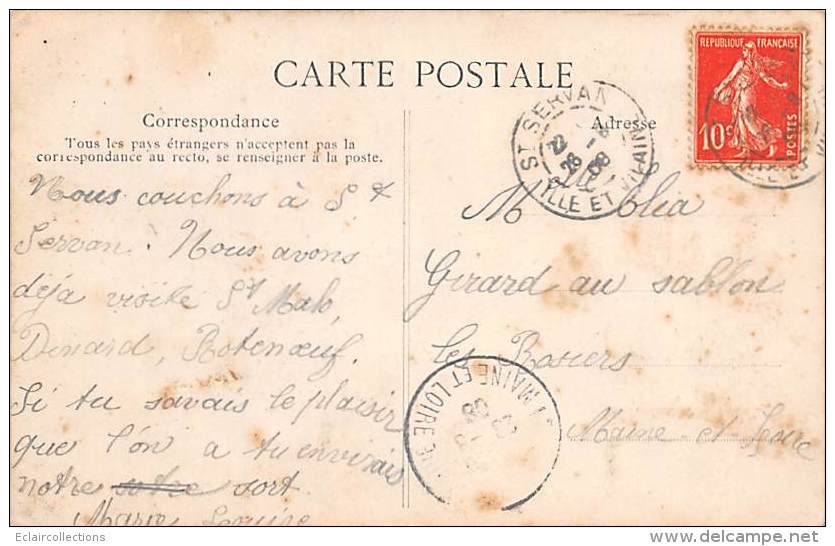 CARTE POSTALE
Correspondance
Tous les pays étrangers n'acceptent pas la
correspondance au recto, se renseigner à la poste.
Nous couchons à St
Servan. Nous avons
déja visité St Malo,
Dinard, Rotenœuf.
Si tu savais le plaisir
que l'on a tu envirais
notre sotre sort.
Marie Louise
Adresse
Mlle Clia
Girard au sablon
les Rosiers
Maine-et-Loire
REPUBLIQUE FRANÇAISE
10c
POSTES
ST SERVAN
ILLE ET VILAINE
MAINE ET LOIRE
Eclaircollections
www.delcampe.net